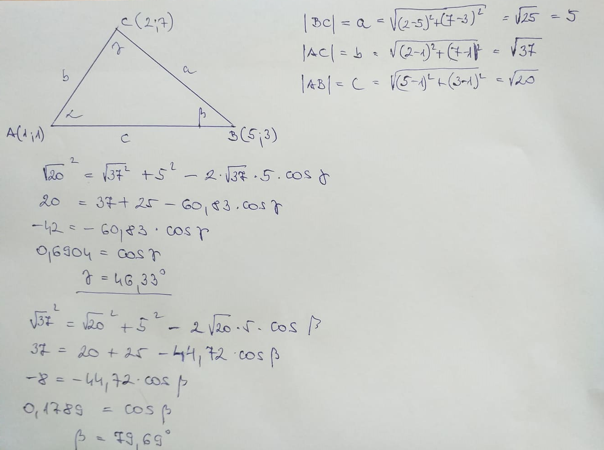 C (2;7)
γ
b
a
α
β
A(1;1)
C
B(5;3)
|BC| = a = √(2-5)²+(7-3)² = √25 = 5
|AC| = b = √(2-1)²+(7-1)² = √37
|AB| = C = √(5-1)²+(3-1)² = √20
√20² = √37² + 5² - 2·√37·5·cos γ
20 = 37 + 25 - 60,83·cos γ
-42 = -60,83·cos γ
0,6904 = cos γ
γ = 46,33°
√37² = √20² + 5² - 2√20·5·cos β
37 = 20 + 25 - 44,72·cos β
-8 = -44,72·cos β
0,1789 = cos β
β = 79,69°